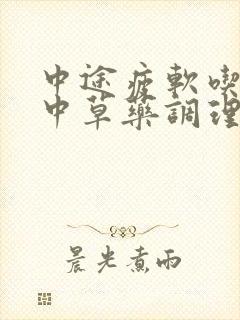 中途疲軟喫
中草藥調理
晨光煮雨